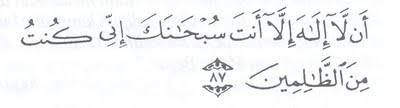 أَن لَّآ إِلَٰهَ إِلَّآ أَنتَ سُبْحَٰنَكَ إِنِّي كُنتُ
مِنَ ٱلظَّٰلِمِينَ ٨٧